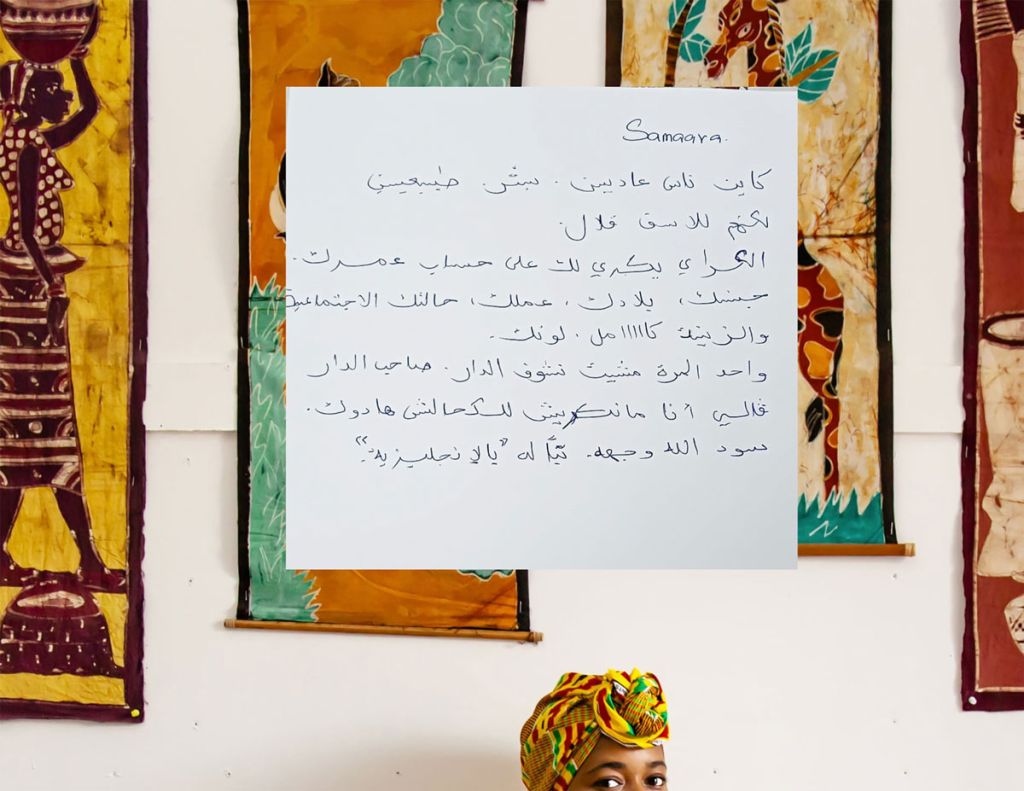 Samaara.
كاين ناس عاديين. بشر. طبيعيين
لكنهم للاسف قلال.
الكراي يكري لك على حساب عمرك.
جنسك، بلادك، عملك، حالتك الاجتماعية
والزينة كااااامل. لونك.
واحد المرة مشيت نشوف الدار. صاحب الدار
قالي أنا مانكريش للكحالش هادوك.
سود الله وجهه. تبًّا له "بالإنجليزية".